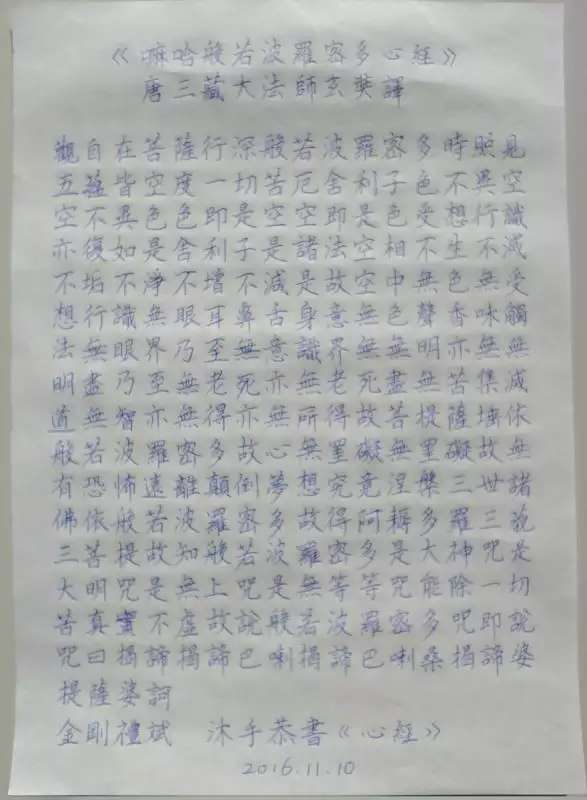 《嘛哈般若波羅密多心經》
唐三藏大法師玄奘譯
觀自在菩薩行深般若波羅密多時照見
五蘊皆空度一切苦厄舍利子色不異空
空不異色色即是空空即是色受想行識
亦復如是舍利子是諸法空相不生不滅
不垢不淨不增不減是故空中無色無受
想行識無眼耳鼻舌身意無色聲香味觸
法無眼界乃至無意識界無無明亦無無
明盡乃至無老死亦無老死盡無苦集滅
道無智亦無得亦無所得故菩提薩埵依
般若波羅密多故心無罣礙無罣礙故無
有恐怖遠離顛倒夢想究竟涅槃三世諸
佛依般若波羅密多故得阿耨多羅三藐
三菩提故知般若波羅密多是大神咒是
大明咒是無上咒是無等等咒能除一切
苦真實不虛故說般若波羅密多咒即說
咒曰揭諦揭諦巴喇揭諦巴喇桑揭諦婆
提薩婆訶
金剛禮斌 沐手恭書《心經》
2016.11.10